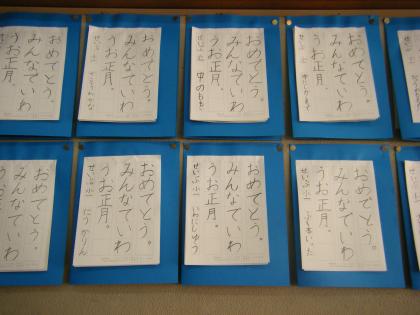 おめでとう。
みんなでいわ
うお正月。
おめでとう。
みんなでいわ
うお正月。
おめでとう。
みんなでいわ
うお正月。
中のもも
おめでとう。
みんなでいわ
うお正月。
おめでとう。
みんなでいわ
おめでとう。
みんなでいわ
うお正月。
せいぶ小一 にうかりん
おめでとう。
みんなでいわ
うお正月。
せいぶ小一
おめでとう。
みんなでいわ
うお正月。
せいぶ小一